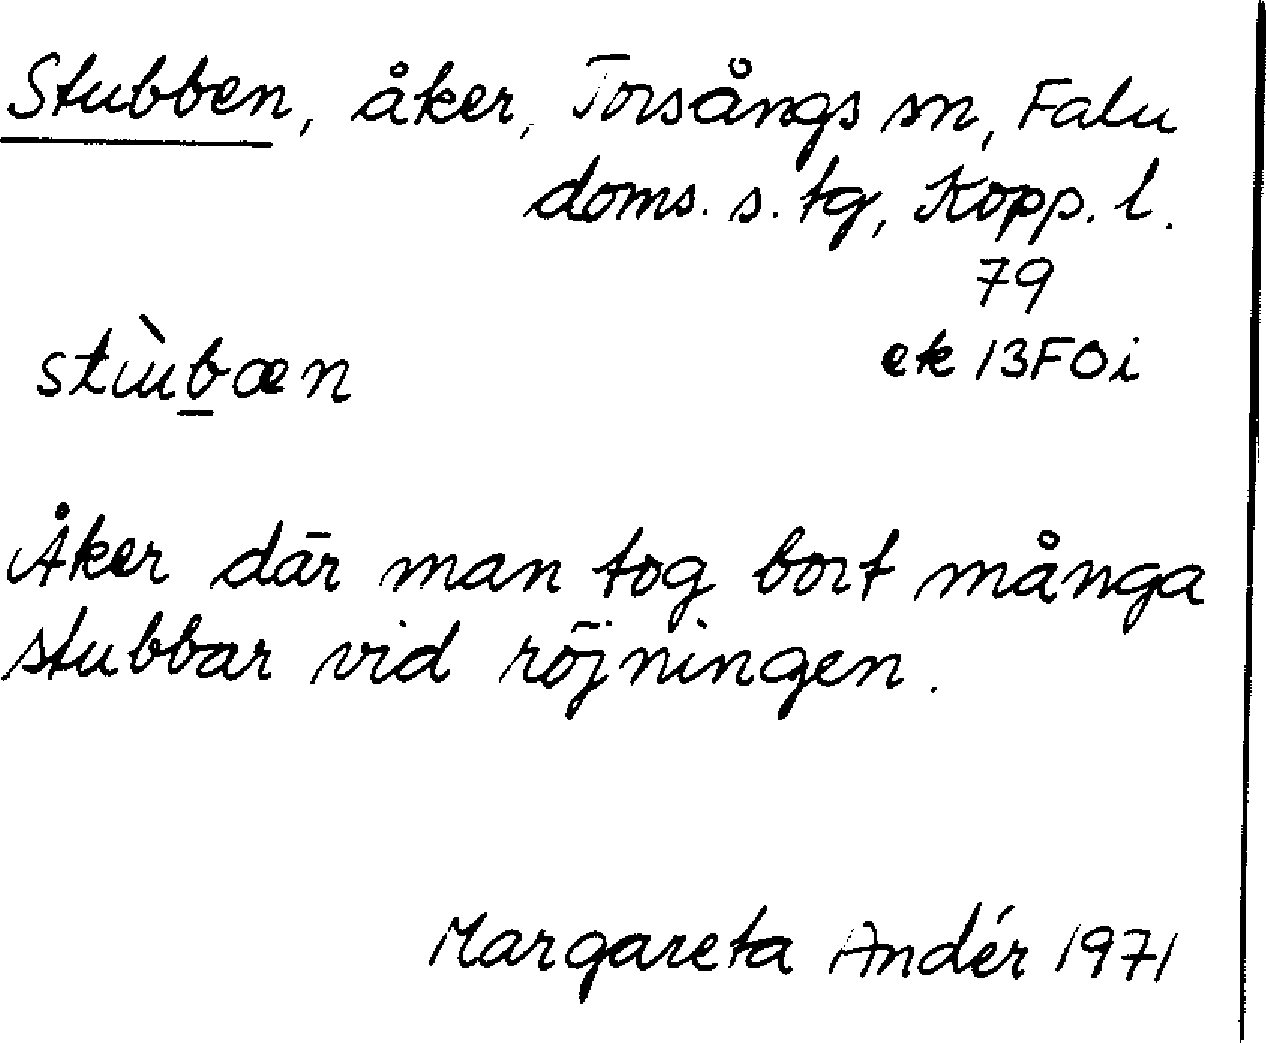 Stubben, åker, Torsångs sn, Falu
doms. s. tg, Kopp. l.
79
stùb̲æn
ek 13F0i
Åker där man tog bort många
stubbar vid röjningen.
Margareta Andér 1971